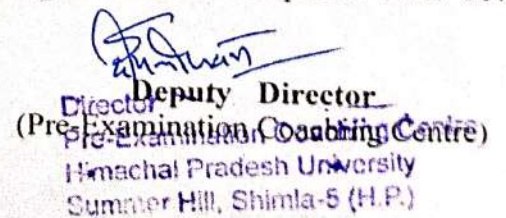 Deputy Director
Director
(Pre-Examination Coaching Centre)
Pre-Examination Coaching Centre
Himachal Pradesh University
Summer Hill, Shimla-5 (H.P.)